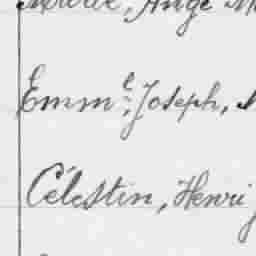 Marie, Ange
Emm.e, Joseph,
Célestin, Henri